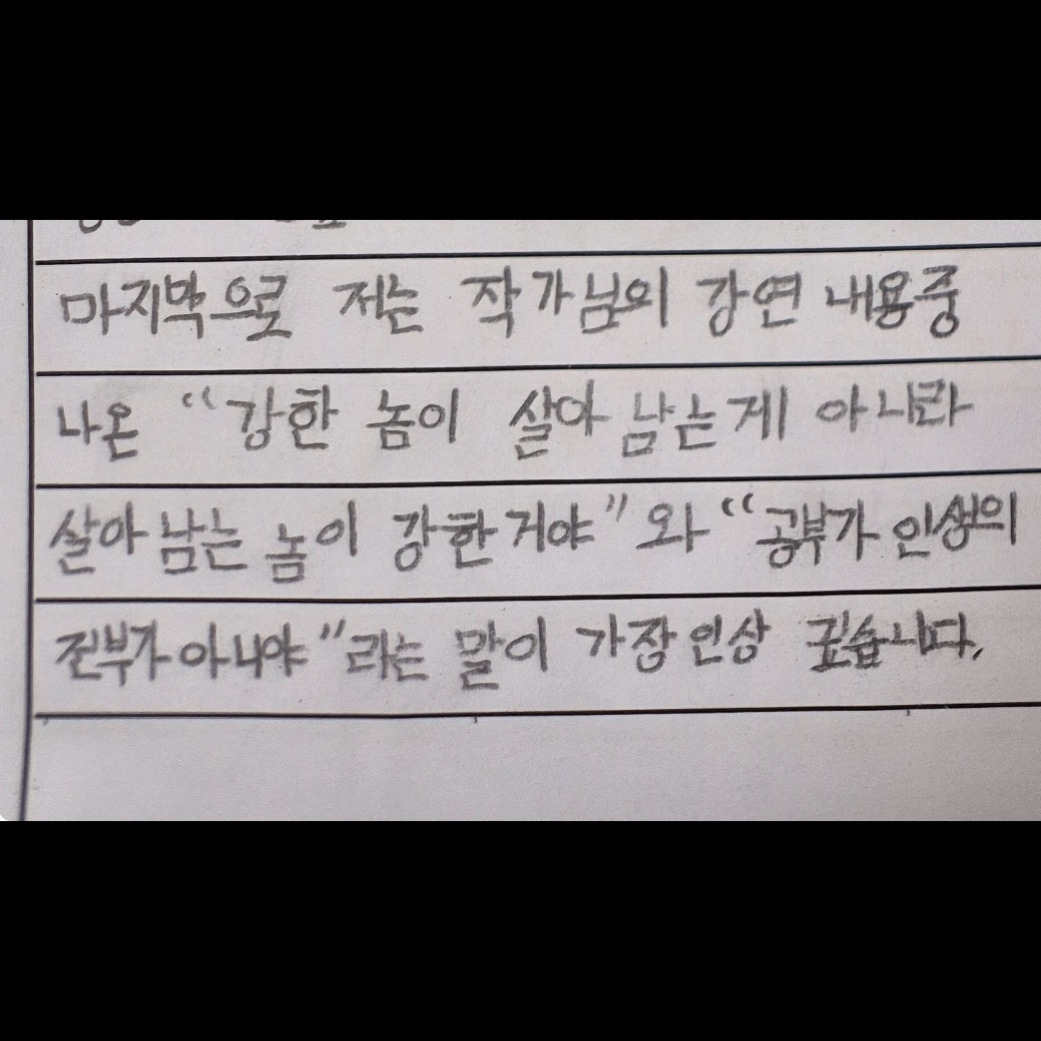 마지막으로 저는 작가님의 강연 내용중
나온 “강한 놈이 살아 남는게 아니라
살아 남는 놈이 강한거야” 와 “공부가 인생의
전부가 아니야”라는 말이 가장 인상 깊습니다.